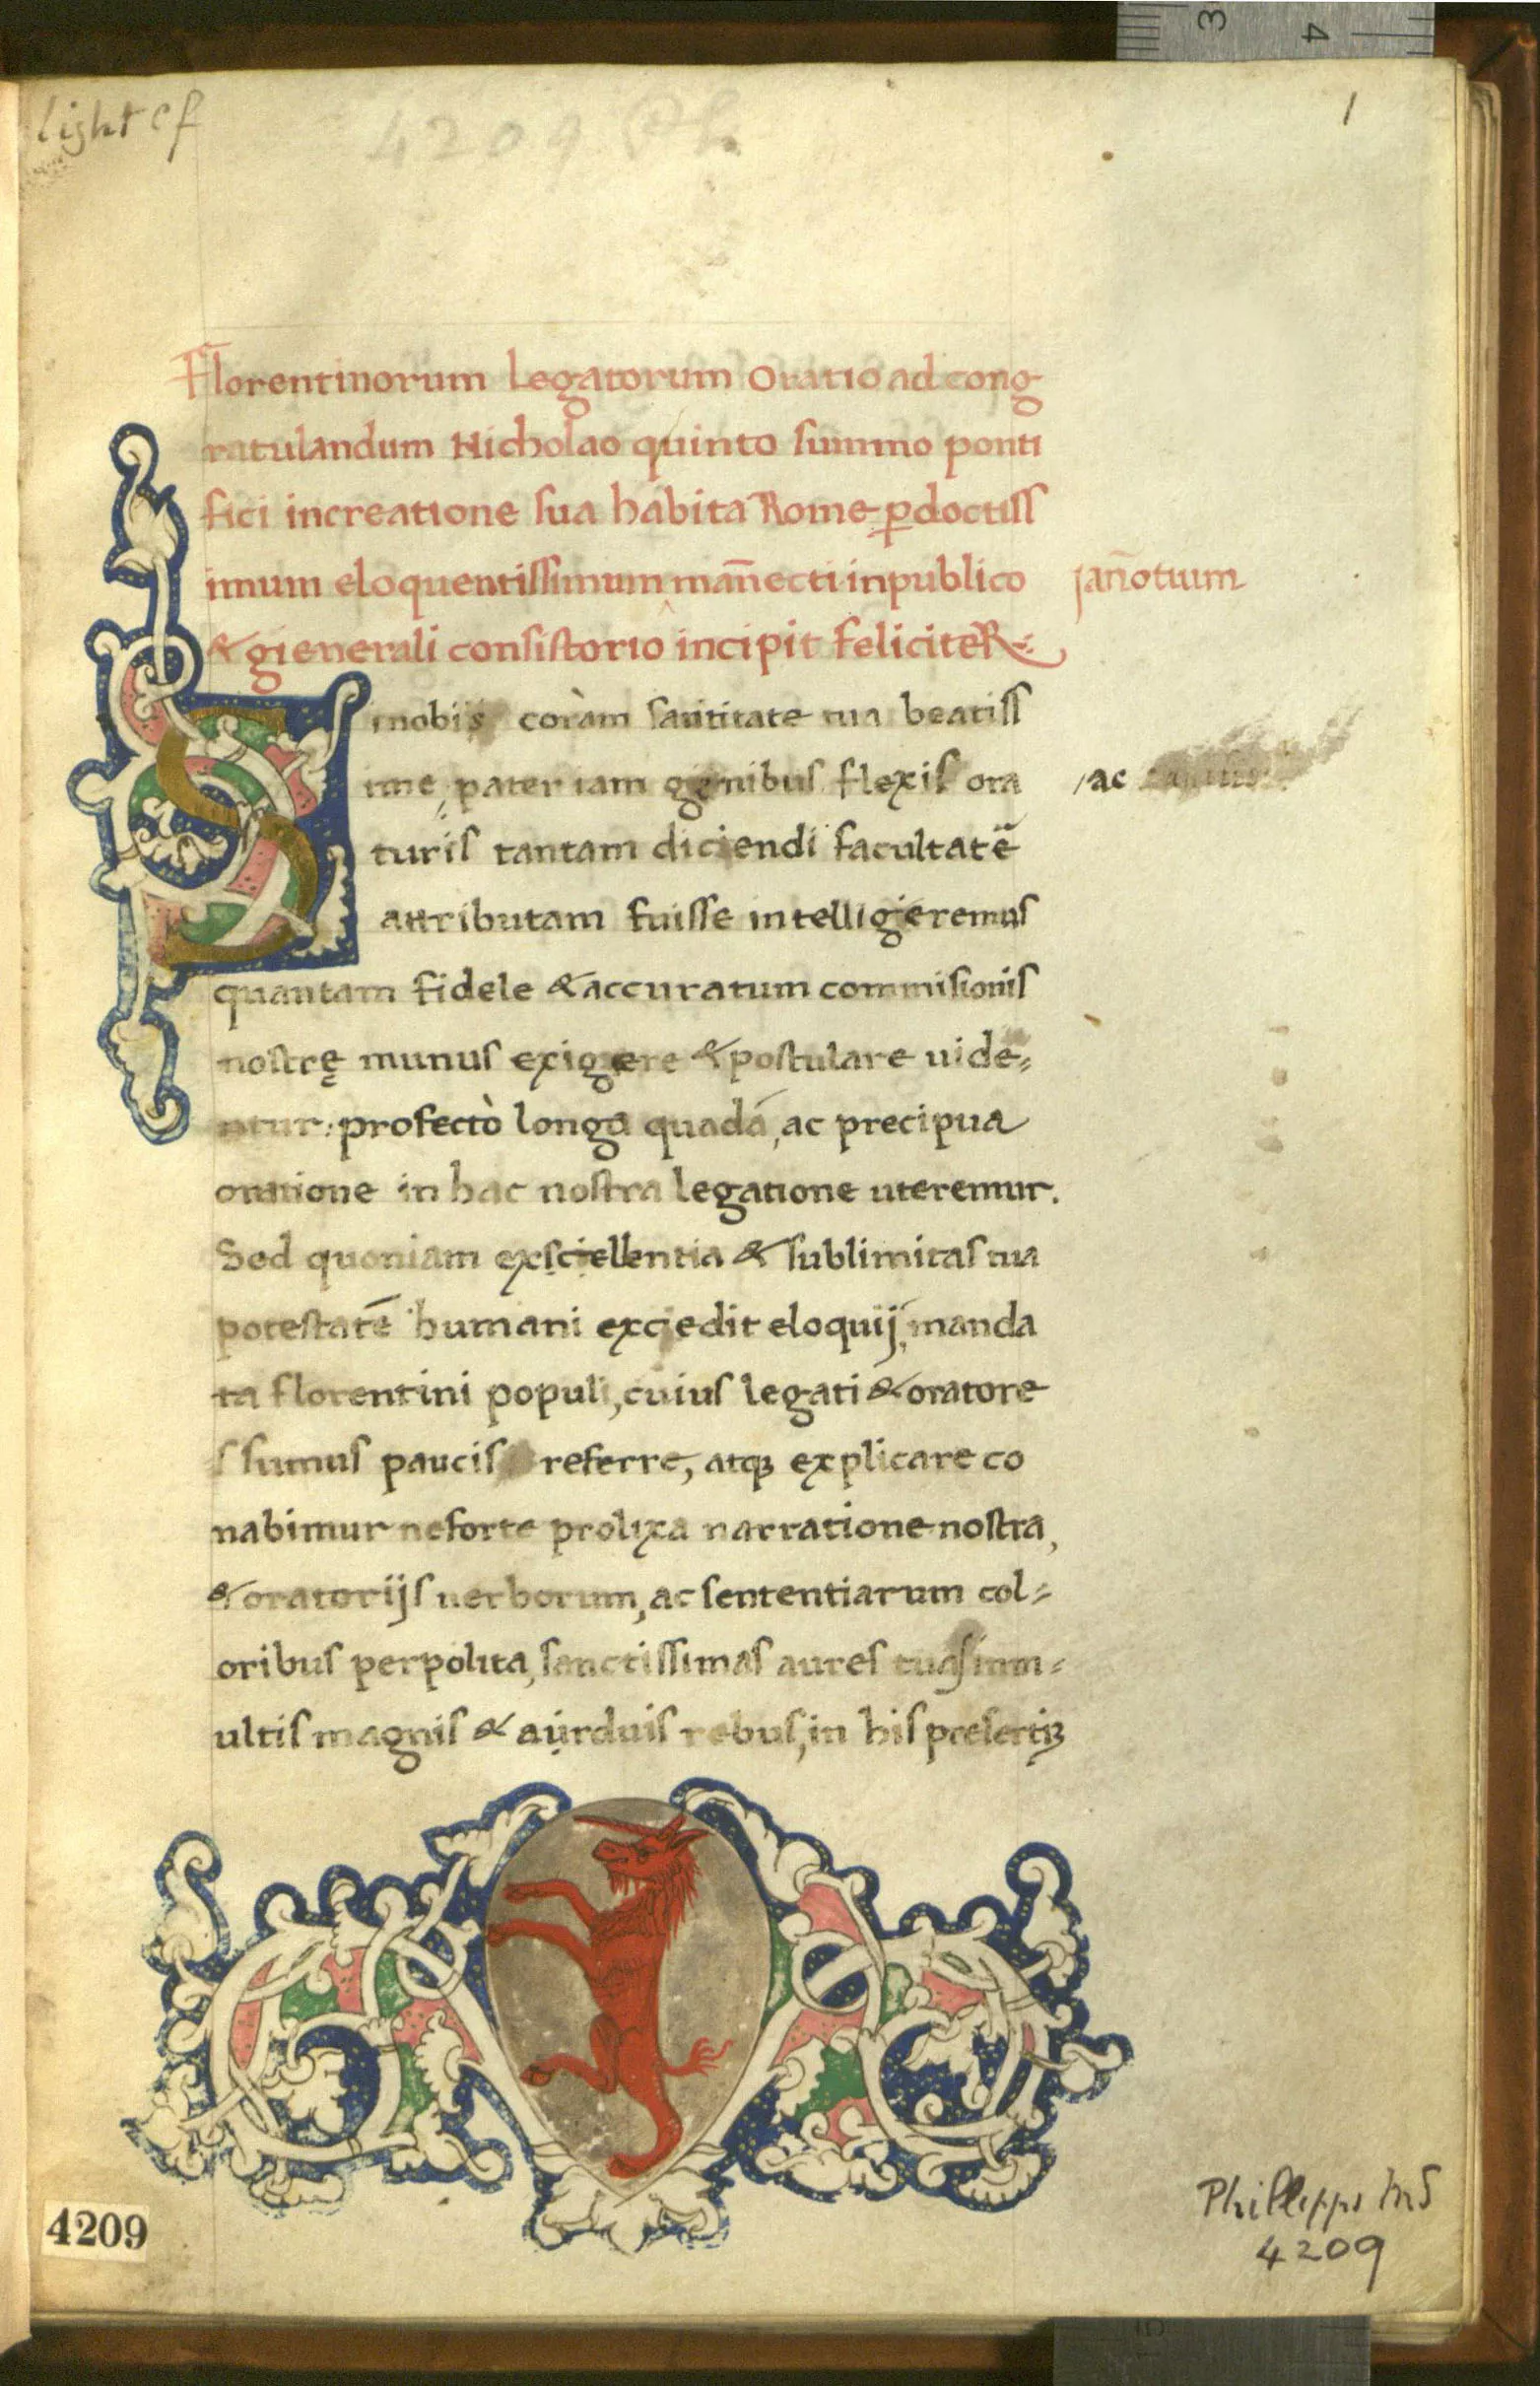 3 4
light cf
4209 Ph
1
Florentinorum Legatorum Oratio ad cong
ratulandum Nicholao quinto summo ponti
fici increatione sua habita Rome ꝑdoctiss
imum eloquentissimum man̄ecti inpublico
jan̄otium
& gienerali consistorio incipit feliciteR
S
i nobis coràm santitate tua beatiss
ime, pater iam genibus flexis ora
/ac
turis tantam diciendi facultatē
attributam fuisse intelligieremus
quantam fidele & accuratum commisionis
nostrę munus exigere & postulare uide⸗
ntur: profectò longa quadá, ac precipua
oratione in hac nostra legatione uteremur.
Sed quoniam exsciellentia & sublimitas tua
potestatē humani exciedit eloquij, manda
ta florentini populi, cuius legati & oratore
s sumus paucis referre, atqꝫ explicare co
nabimur neforte prolixa narratione nostra,
& oratorijs uerborum, ac sententiarum col⸗
oribus perpolita, sanctissimas aures tuas inm⸗
ultis magnis & aurduis rebus, in his presertiꝫ
4209
Phillipps MS
4209